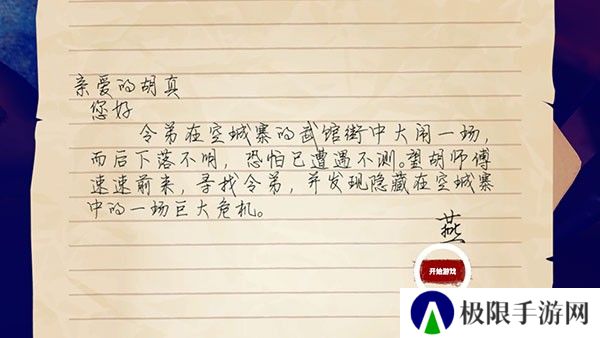 亲爱的胡真
您好
令弟在空城寨的武馆街中大闹一场,
而后下落不明,恐怕已遭遇不测。望胡师傅
速速前来,寻找令弟,并发现隐藏在空城寨
中的一场巨大危机。
燕
开始游戏
极限手游网